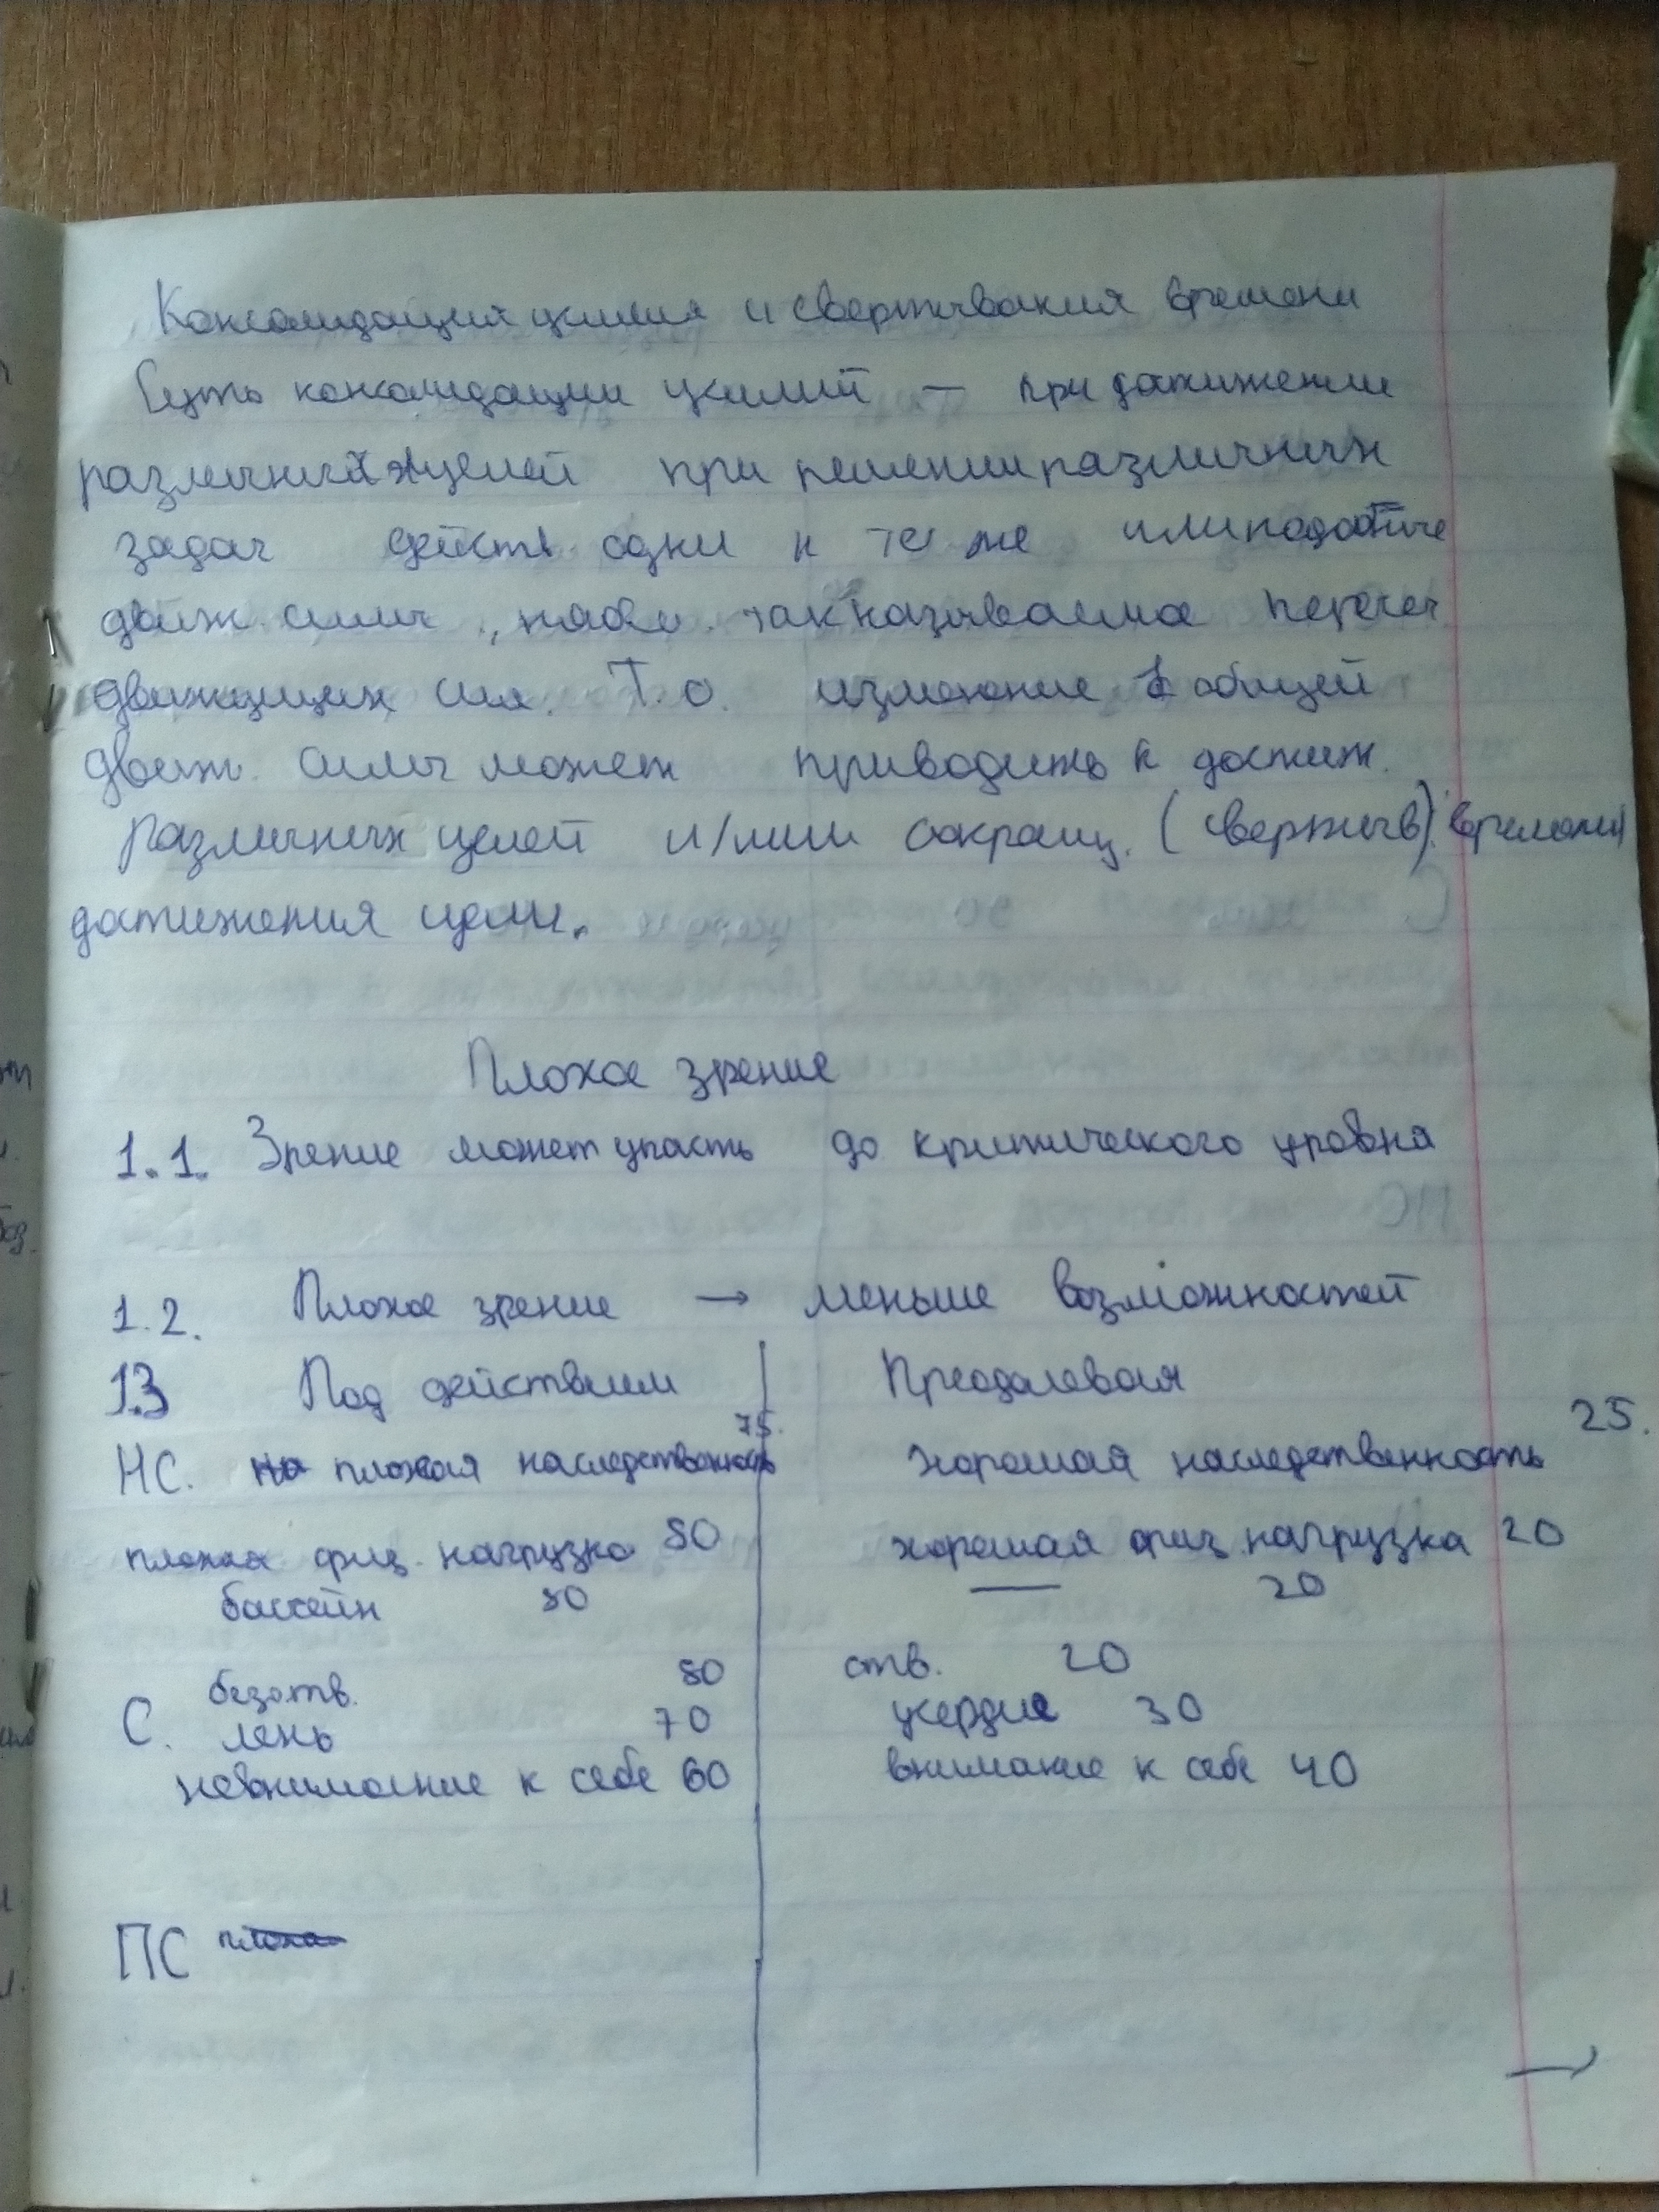 Консолидация усилия и свертывания времени
Суть консолидации усилий — при достижении
различных целей при решении различных
задач действ. одни и те же или подобные
движ. силы, набл. так называемое пересеч.
движущих сил. Т.о. изменение 1 общей
движ. силы может приводить к достиж.
различных целей и/или сокращ. (свертыв). времени
достижения цели.
Плохое зрение
1.1. Зрение может упасть до критического уровня
1.2. Плохое зрение → меньше возможностей
1.3 Под действием Преодолевая
НС. плохая наследственность 75. хорошая наследственность 25.
плохая физ. нагрузка 80 хорошая физ. нагрузка 20
бассейн 80 — 20
безотв. 80 отв. 20
С. лень 70 усердие 30
невнимание к себе 60 внимание к себе 40
ПС
→